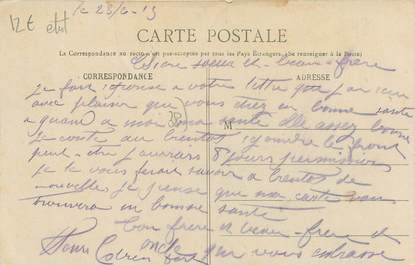 12€ etat
le 23/6-15
CARTE POSTALE
La Correspondance au recto n'est pas acceptée par tous les Pays Étrangers. (Se renseigner à la Poste)
Chère sœur et beau-frère
CORRESPONDANCE
ADRESSE
je fait réponse a votre lettre que j'ai reçu
avec plaisir que vous etiez en bonne santé
a quand a moi ma santé elle assez bonne
M
je conte au bientot rejoindre le front
peut-etre j'aurrais 8 jours permission
je te vous ferait savoir a bientot de
nouvelle je pense que ma carte vous
trouvera en bonne santé
Ton frère et beau-frère et
oncle qui vous embrasse
fort